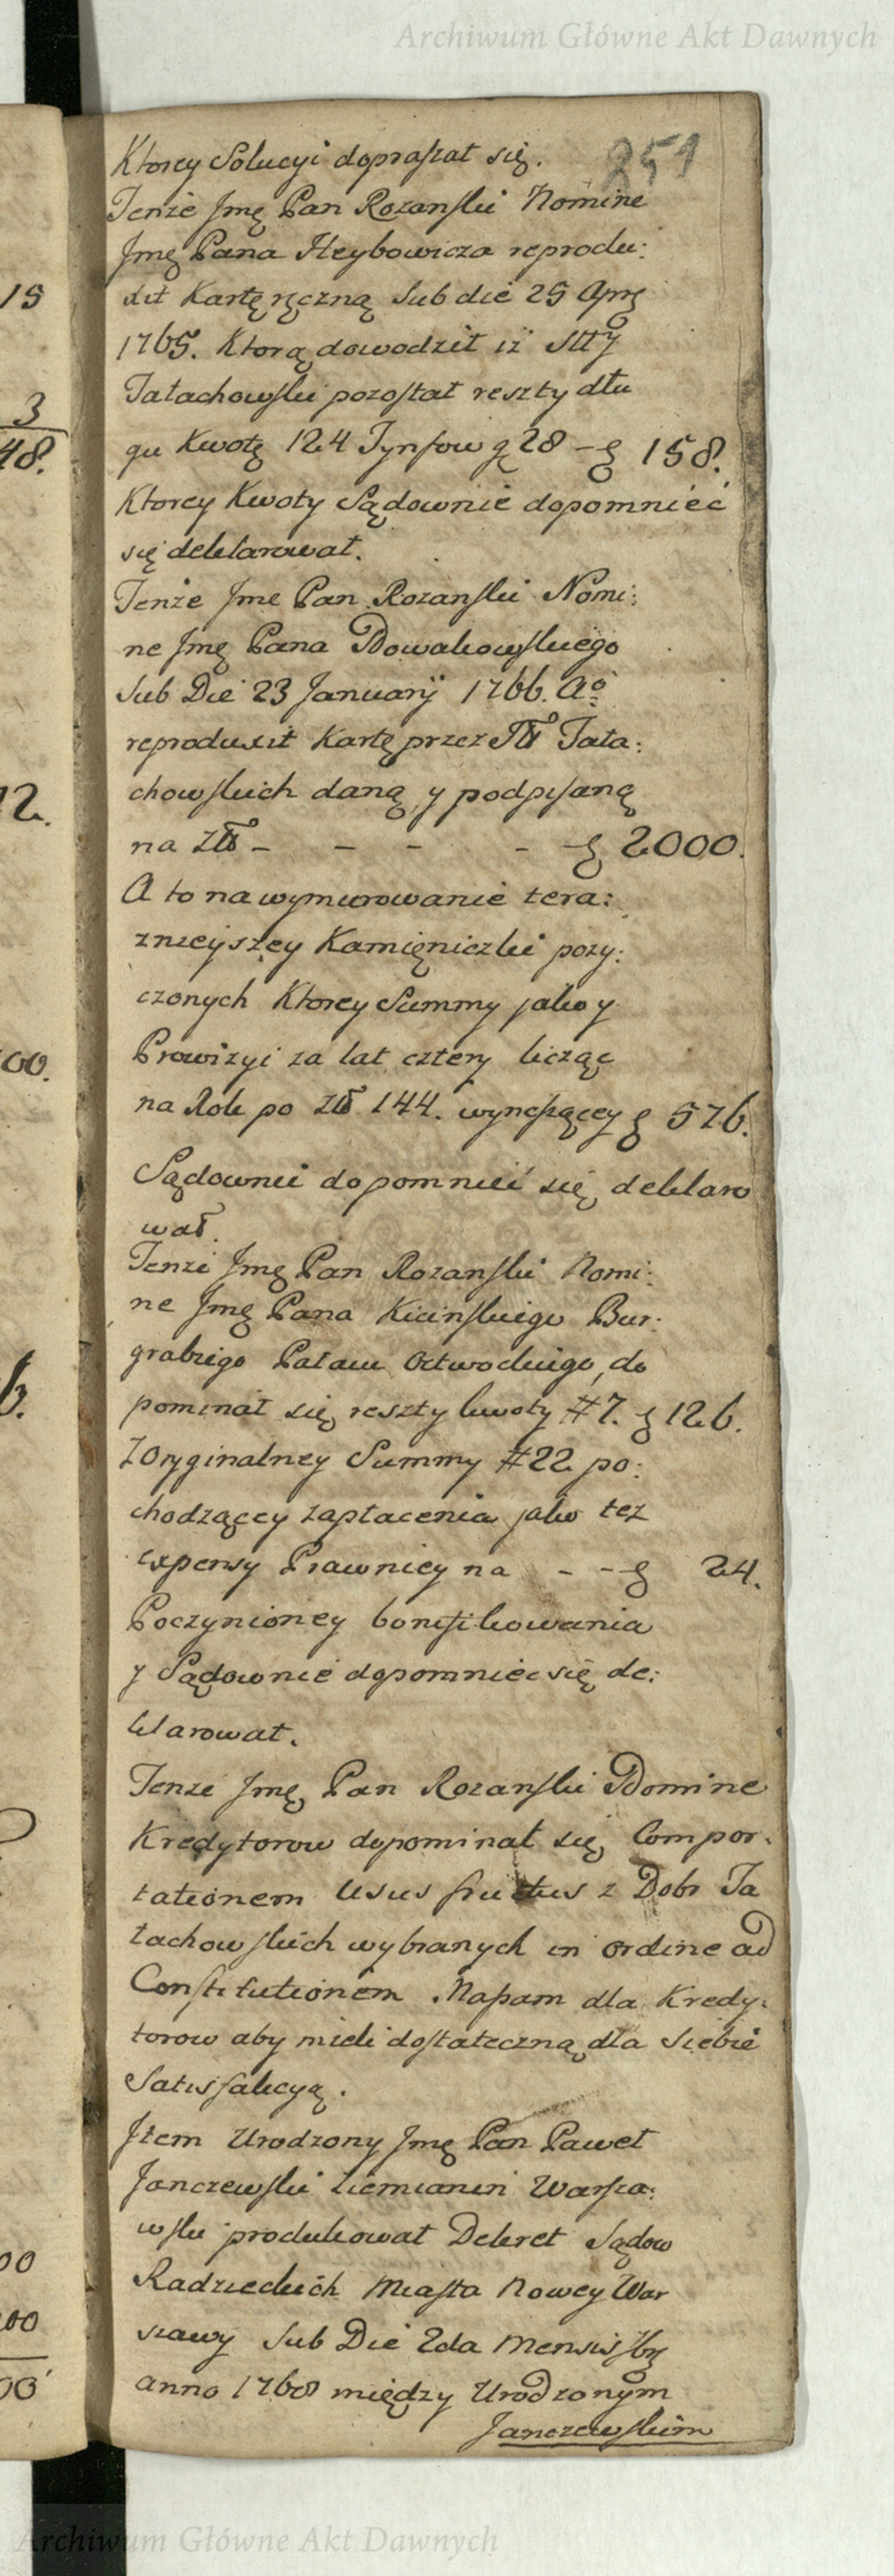 Archiwum Główne Akt Dawnych
251
Ktorey Solucyi dopraszał się.
Tenże Jmę Pan Rozanski Nomine
Jmę Pana Heybowicza reprodu:
xit Kartę ręczną Sub die 25 Aprę
1765. Ktorą dowodził iż
Tatachowski pozostał reszty dłu
gu Kwotę 124 Tynfow 28 - 158.
Ktorey Kwoty Sądownie dopomnieć
się deklarował.
Tenże Jme Pan Rozanski Nomi:
ne Jmę Pana Nowakowskiego
Sub Die 23 Januarÿ 1766. Aº
reproduxit Kartę przez Tata:
chowskich daną y podpisaną
na Złł - - - - 2000.
A to na wymurowanie tera:
znieyszey Kamięniczki pozy:
czonych Ktorey Summy jako y
Prowizyi za lat cztery licząc
na Rok po Złł 144. wynoszącey 576.
Sądownie dopomnieć się deklaro
wał.
Tenże Jmę Pan Rozanski Nomi:
ne Jmę Pana Kicinskiego Bur:
grabiego Pałacu Otwockiego do
pominał się reszty kwoty #7. 126.
Z Oryginalney Summy #22 po:
chodzącey zapłacenia jako też
Expensy Prawniey na - - 24.
Poczynioney bonifikowania
y Sądownie dopomniec się de:
klarował.
Tenże Jmę Pan Rozanski Nomine
Kredytorow dopominał się Compor:
tationem Usus fructus z Dobr Ta
tachowskich wybranych in ordine ad
Constitutionem Massam dla Kredy:
torow aby mieli dostateczną dla Siebie
Satisfakcyą.
Item Urodzony Jmę Pan Paweł
Janczewski Ziemianin Warsza:
wski produkował Dekret Sądow
Radzieckich Miasta Nowey War
szawy Sub Die 2da Mensis
anno 1768 między Urodzonym
Janczewskim
15
3
48.
12.
00.
6.
00
00
00
Archiwum Główne Akt Dawnych